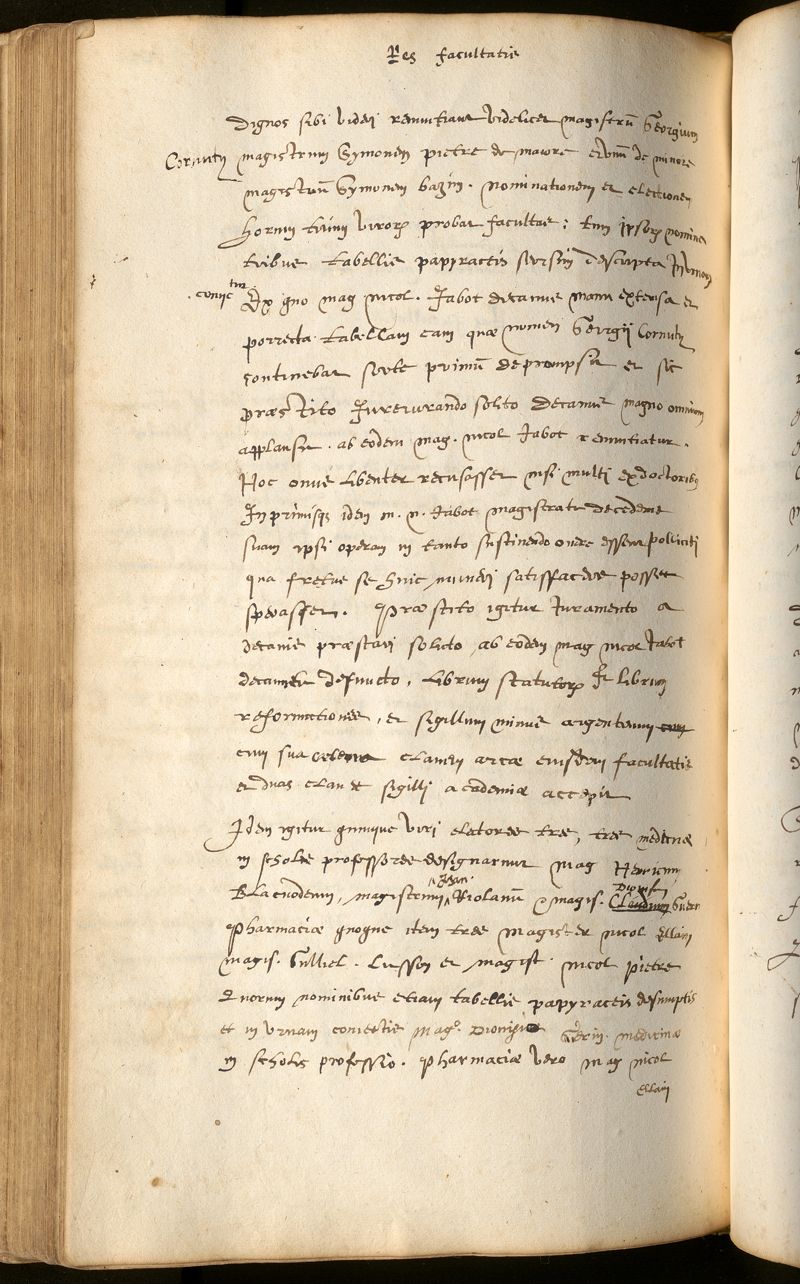 Res facultatis
dignos sibi videri renuntiant videlicet magistrũ Georgium
Cornuty magistrum Symonem pietre de maiore et unũ de minore
magistrũ Symonem bazin. nominationem et electionem
horum trium virorũ probat facultas: tum ipsorũ nomina
tribus tabellis papyraceis seorsim descripta in urnam
coniic
ex qno mag nicol. Jabot decanus manu extensa et
porrecta tabellam eam quæ nomen Georgii Cornuty
continebat sorte primũ deprompsit et sic
præstito Jureiurando solito decanus magno omnium
applausu. ab eodem mag. nicol Jabot renuntiatur.
Hoc onus libenter recusasset nisi multi ex doctoribus
Inprimisq idem m. n. Jabot magistratu decedens
suam ipsi operam in tanto sustinendo onere essent polliciti
qua fretus se huic muneri satisfacere posset
sperasset. Præstito igitur Juramento a
decanis præstari solito ab eodem mag nicol Jabot
decanatu defuncto, librum statutorũ et librum
reformationis, et sigillum minus argenteum
cum sua clavem arcæ eiusdem facultatis
et duas claves sigilli academiæ accepit
Idem igitur quinque viri electores tres, tres medicinæ
in scholis professores designarunt mag Henricum
Blacuodeum, magistrum Joan. Riolanũ & magis. Dionisiũ Guerin
Pharmaciæ quoque item tres magister nicol Ellain
magis. Gulliel. Lusson et magist. nicol pietre
Quorum nominibus etiam tabellis papyraceis desumptis
et in urnam coniectis Mag. Dionisius Guerin. medicinæ
in scholis professio. Pharmaciæ vero mag nicol
ellain